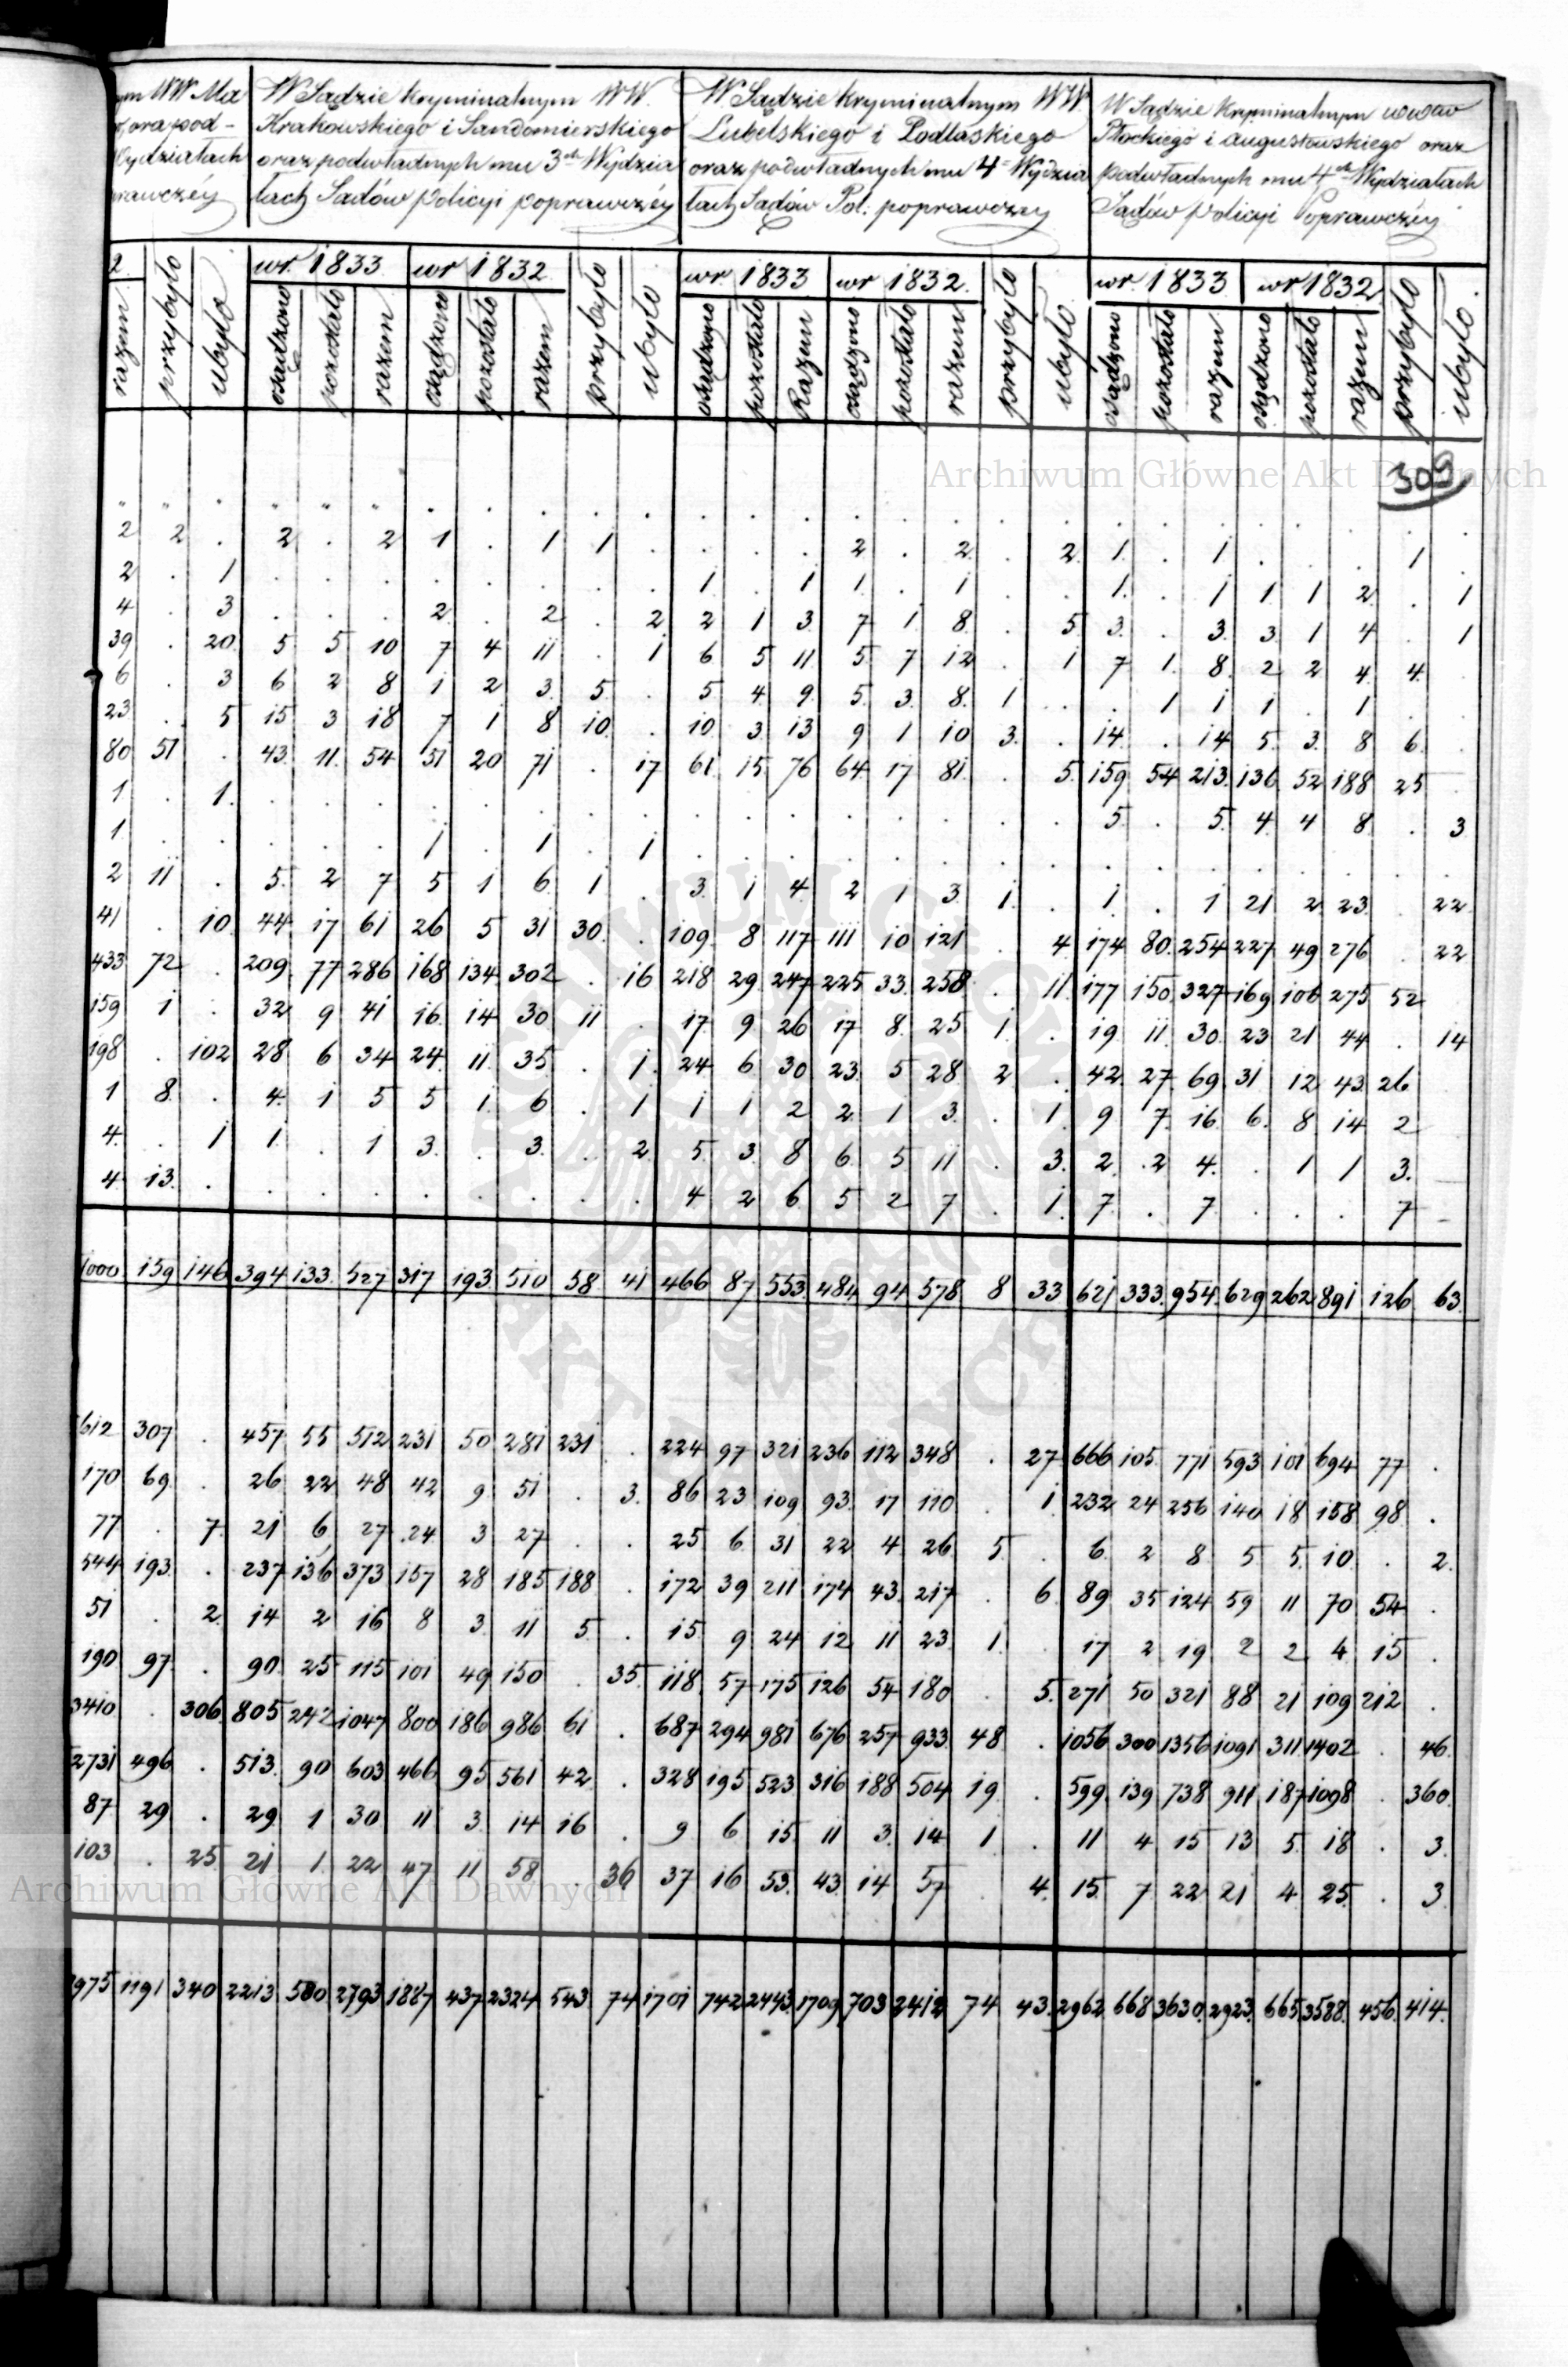 ym WW Ma
oraz pod-
Wydziałach
prawczéy
W Sądzie kryminalnym WW.
Krakowskiego i Sandomierskiego
oraz podwładnych mu 3ch Wydzia
łach Sądów policyi poprawczéy
W Sądzie kryminalnym WW
Lubelskiego i Podlaskiego
oraz podwładnych mu 4ch Wydzia
łach Sądów Pol: poprawczey
W Sądzie Kryminalnym wowtw
Płockiego i augustowskiego oraz
podwładnych mu 4ch Wydziałach
Sądów policyi Poprawczéy
2. wr. 1833 wr 1832 wr. 1833 wr 1832. wr. 1833 wr 1832
razem przybyło ubyło osądzono pozostało razem osądzono pozostało razem przybyło ubyło osądzono pozostało Razem osądzono pozostało razem przybyło ubyło osądzono pozostało razem osądzono pozostało razem przybyło ubyło.
309
Archiwum Główne Akt Dawnych
2 2 . 2 . 2 1 . 1 1 . . . . 2 . 2 . 2 1 . 1 . . . 1 .
2 . 1 . . . . . . . . 1 . 1 1 . 1 . . 1 . 1 1 1 2 . 1
4 . 3 . . . 2 . 2 . 2 2 1 3 7 1 8 . 5 3 . 3 3 1 4 . 1
39 . 20 5 5 10 7 4 11 . 1 6 5 11 5 7 12 . 1 7 1 8 2 2 4 4 .
6 . 3 6 2 8 1 2 3 5 . 5 4 9 5 3 8 1 . . 1 1 1 . 1 . .
23 . 5 15 3 18 7 1 8 10 . 10 3 13 9 1 10 3 . 14 . 14 5 3 8 6 .
80 51 . 43 11 54 51 20 71 . 17 61 15 76 64 17 81 . 5 159 54 213 136 52 188 25 .
1 . 1 . . . . . . . . . . . . . . . . 5 . 5 4 4 8 . 3
1 . . . . . 1 . 1 . 1 . . . . . . . . . . . . . . . .
2 11 . 5 2 7 5 1 6 1 . 3 1 4 2 1 3 1 . 1 . 1 21 2 23 . 22
41 . 10 44 17 61 26 5 31 30 . 109 8 117 111 10 121 . 4 174 80 254 227 49 276 . 22
433 72 . 209 77 286 168 134 302 . 16 218 29 247 225 33 258 . 11 177 150 327 169 106 275 52
159 1 . 32 9 41 16 14 30 11 . 17 9 26 17 8 25 1 . 19 11 30 23 21 44 . 14
198 . 102 28 6 34 24 11 35 . 1 24 6 30 23 5 28 2 . 42 27 69 31 12 43 26
1 8 . 4 1 5 5 1 6 . 1 1 1 2 2 1 3 . 1 9 7 16 6 8 14 2
4 . 1 1 . 1 3 . 3 . 2 5 3 8 6 5 11 . 3 2 2 4 . 1 1 3
4 13 . . . . . . . . . 4 2 6 5 2 7 . 1 7 . 7 . . . 7 -
1000 159 146 394 133 527 317 193 510 58 41 466 87 553 484 94 578 8 33 621 333 954 629 262 891 126 63
612 307 . 457 55 512 231 50 281 231 . 224 97 321 236 112 348 . 27 666 105 771 593 101 694 77 .
170 69 . 26 22 48 42 9 51 . 3 86 23 109 93 17 110 . 1 232 24 256 140 18 158 98 .
77 . 7 21 6 27 24 3 27 . . 25 6 31 22 4 26 5 . 6 2 8 5 5 10 . 2
544 193 . 237 136 373 157 28 185 188 . 172 39 211 174 43 217 . 6 89 35 124 59 11 70 54 .
51 . 2 14 2 16 8 3 11 5 . 15 9 24 12 11 23 1 . 17 2 19 2 2 4 15 .
190 97 . 90 25 115 101 49 150 . 35 118 57 175 126 54 180 . 5 271 50 321 88 21 109 212 .
3410 . 306 805 242 1047 800 186 986 61 . 687 294 981 676 257 933 48 . 1056 300 1356 1091 311 1402 . 46
2731 496 . 513 90 603 466 95 561 42 . 328 195 523 316 188 504 19 . 599 139 738 911 187 1098 . 360
87 29 . 29 1 30 11 3 14 16 . 9 6 15 11 3 14 1 . 11 4 15 13 5 18 . 3
103 . 25 21 1 22 47 11 58 . 36 37 16 53 43 14 57 . 4 15 7 22 21 4 25 . 3
Archiwum Główne Akt Dawnych
975 1191 340 2213 580 2793 1887 437 2324 543 74 1701 742 2443 1709 703 2412 74 43 2962 668 3630 2923 665 3588 456 414
ARCHIWUM GŁÓWNE AKT DAWNYCH